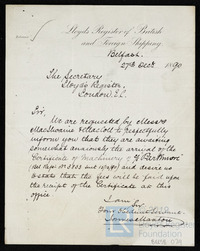 Lloyd's Register of British
and Foreign Shipping.
Belfast.
27th Decr 1890
The Secretary
Lloyd's Register,
London E.C.
Sir,
We are requested by Messrs
to respectfully
inform you that they are awaiting
somewhat anxiously the arrival of the
Certificate of Machinery of
and desire us
to state that the fees will be paid upon
the receipt of the Certificate at this
office
I am Sir
Your Obedient Servant